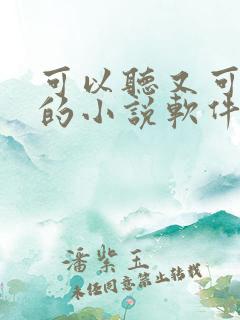 可以聽又可
的小説軟件
潘紫玉
未經同意禁止轉載